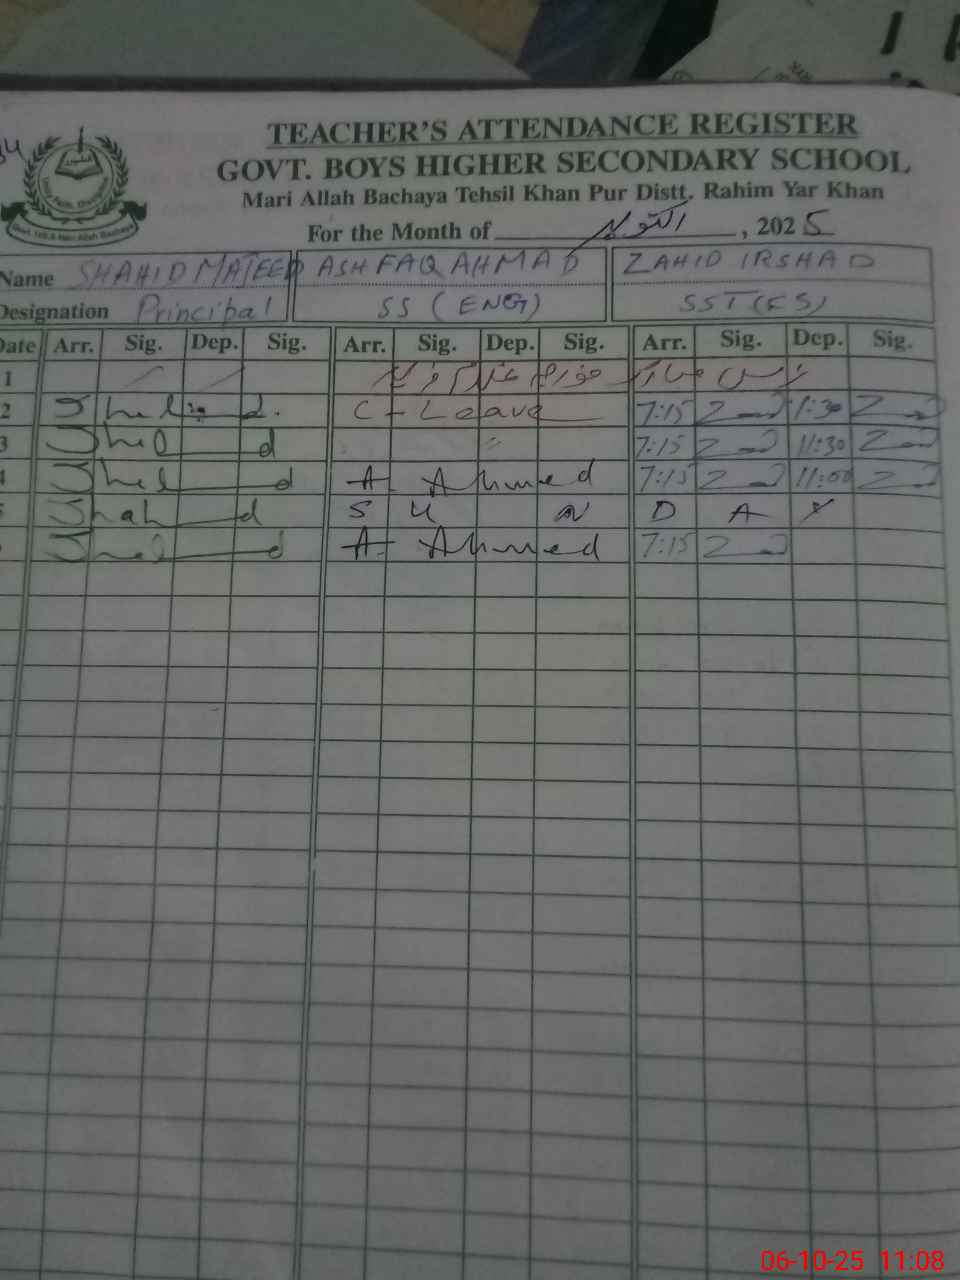 TEACHER'S ATTENDANCE REGISTER
GOVT. BOYS HIGHER SECONDARY SCHOOL
Mari Allah Bachaya Tehsil Khan Pur Distt. Rahim Yar Khan
For the Month of اکتوبر, 2025
Name SHAHID MAJEED ASHFAQ AHMAD ZAHID IRSHAD
Designation Principal SS (ENG) SST(CS)
Date Arr. Sig. Dep. Sig. Arr. Sig. Dep. Sig. Arr. Sig. Dep. Sig.
1
2 Shahid C-Leave 7:15 1:30
3 Shahid 〃 7:15 11:30
4 Shahid A. Ahmed 7:15 11:00
5 Shahid S U N D A Y
Shahid A. Ahmed 7:15
06-10-25 11:08